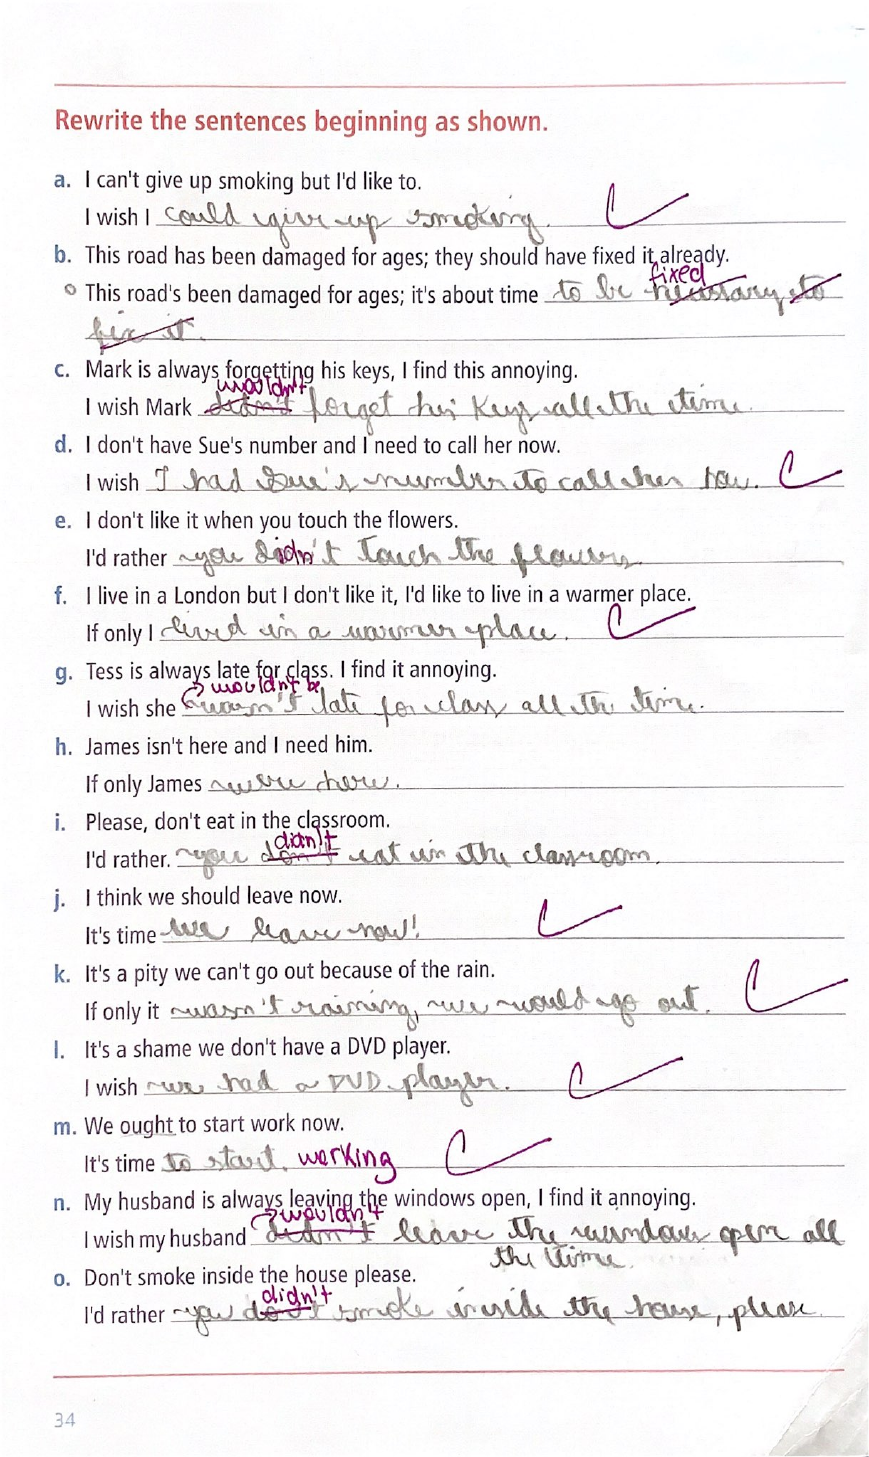 Rewrite the sentences beginning as shown.
a. I can't give up smoking but I'd like to.
I wish I could give up smoking.
b. This road has been damaged for ages; they should have fixed it already.
fixed
This road's been damaged for ages; it's about time to be necessary to
fix it.
c. Mark is always forgetting his keys, I find this annoying.
wouldn't
I wish Mark didn't forget his keys all the time.
d. I don't have Sue's number and I need to call her now.
I wish I had Sue's number to call her now.
e. I don't like it when you touch the flowers.
I'd rather you didn't touch the flowers.
f. I live in a London but I don't like it, I'd like to live in a warmer place.
If only I lived in a warmer place.
g. Tess is always late for class. I find it annoying.
wouldn't be
I wish she wasn't late for class all the time.
h. James isn't here and I need him.
If only James were here.
i. Please, don't eat in the classroom.
didn't
I'd rather. you don't eat in the classroom.
j. I think we should leave now.
It's time we leave now!
k. It's a pity we can't go out because of the rain.
If only it wasn't raining, we would go out.
l. It's a shame we don't have a DVD player.
I wish we had a DVD player.
m. We ought to start work now.
It's time to start working
n. My husband is always leaving the windows open, I find it annoying.
wouldn't
I wish my husband didn't leave the windows open all
the time.
o. Don't smoke inside the house please.
didn't
I'd rather you don't smoke inside the house, please.
34